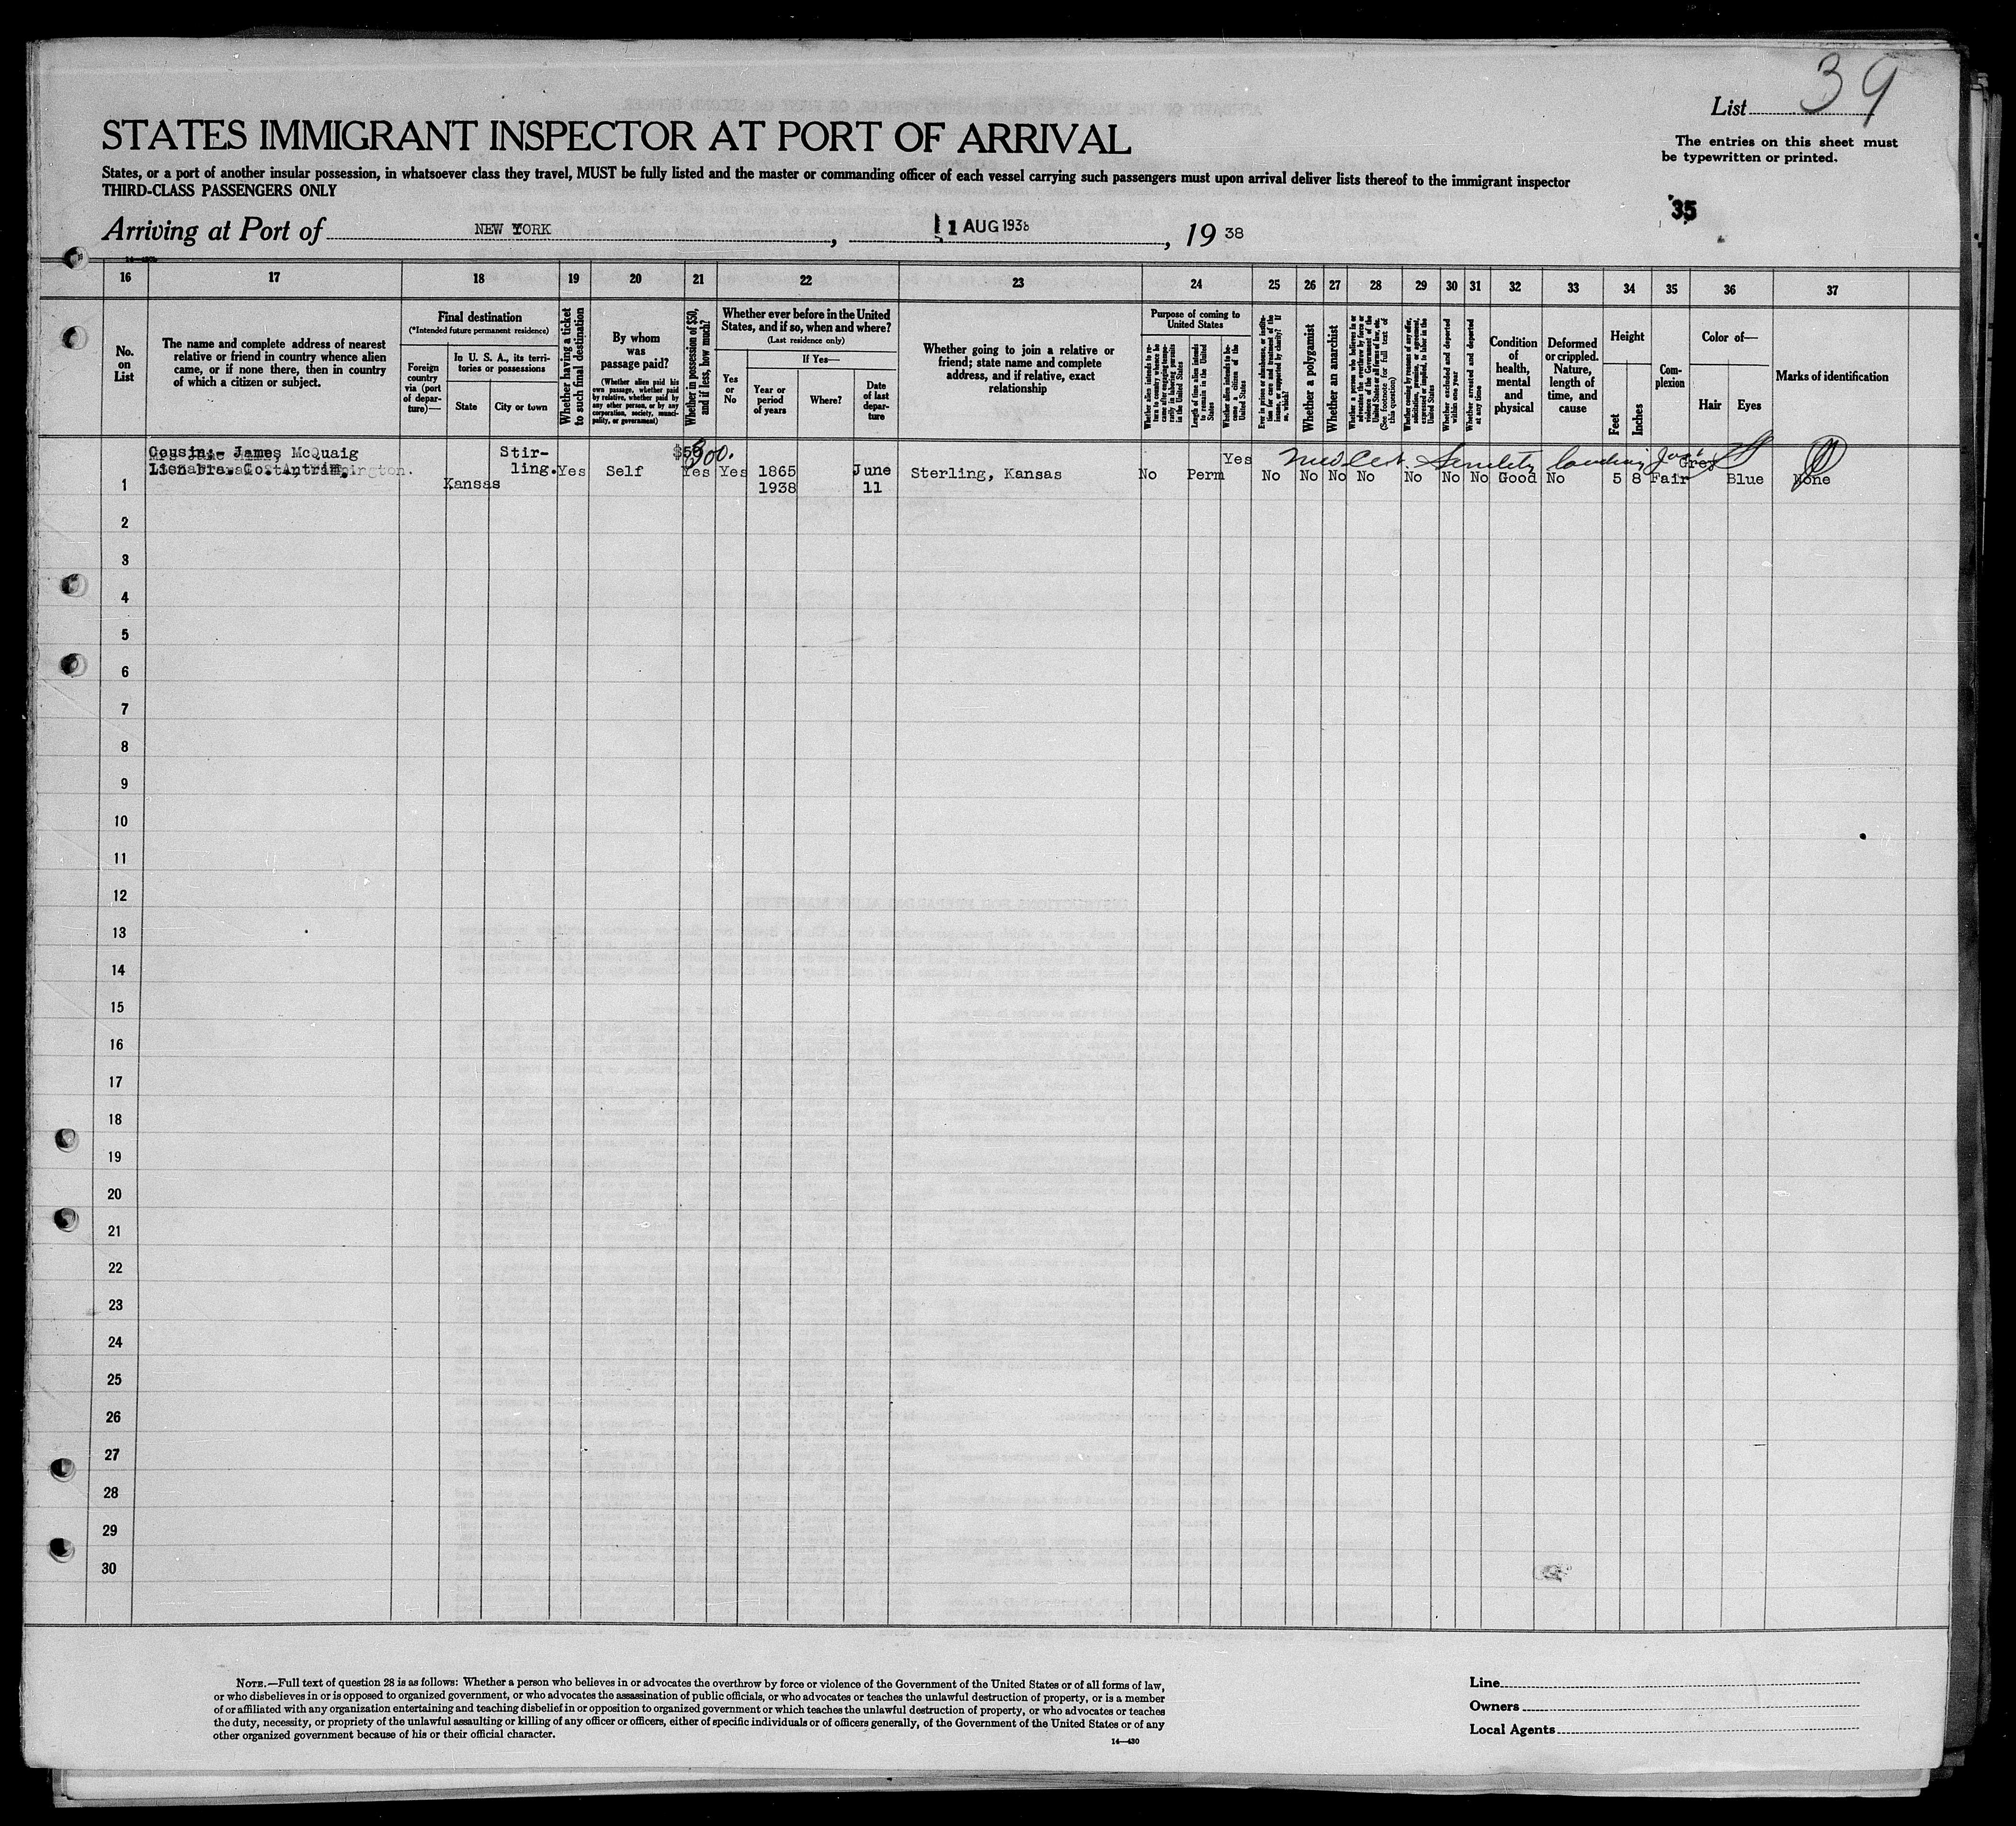 List 39
STATES IMMIGRANT INSPECTOR AT PORT OF ARRIVAL
The entries on this sheet must
be typewritten or printed.
States, or a port of another insular possession, in whatsoever class they travel, MUST be fully listed and the master or commanding officer of each vessel carrying such passengers must upon arrival deliver lists thereof to the immigrant inspector
THIRD-CLASS PASSENGERS ONLY
35
Arriving at Port of NEW YORK, 1 AUG 1938, 19 38
16 17 18 19 20 21 22 23 24 25 26 27 28 29 30 31 32 33 34 35 36 37
No.
on
List
The name and complete address of nearest
relative or friend in country whence alien
came, or if none there, then in country
of which a citizen or subject.
Final destination
(*Intended future permanent residence)
Foreign
country
via (port
of depar-
ture)—
In U. S. A., its terri-
tories or possessions
State
City or town
Whether having a ticket
to such final destination
By whom
was
passage paid?
(Whether alien paid his
own passage, whether paid
by relative, whether paid by
any other person, or by any
corporation, society, munici-
pality, or government)
Whether in possession of $50,
and if less, how much?
Whether ever before in the United
States, and if so, when and where?
(Last residence only)
Yes
or
No
If Yes—
Year or
period
of years
Where?
Date
of last
depar-
ture
Whether going to join a relative or
friend; state name and complete
address, and if relative, exact
relationship
Purpose of coming to
United States
Whether alien intends to re-
turn to country whence he
came after engaging tempo-
rarily in laboring pursuits
in the United States
Length of time alien intends
to remain in the United
States
Whether alien intends to be-
come a citizen of the
United States
Ever in prison or almshouse, or institu-
tion for care and treatment of the
insane, or supported by charity? If
so, which?
Whether a polygamist
Whether an anarchist
Whether a person who believes in or
advocates the overthrow by force or
violence of the Government of the
United States or all forms of law, etc.
(See footnote for full text of
this question)
Whether coming by reasons of any offer,
solicitation, promise, or agreement,
expressed or implied, to labor in the
United States
Whether excluded and deported
within one year
Whether arrested and deported
at any time
Condition
of
health,
mental
and
physical
Deformed
or crippled.
Nature,
length of
time, and
cause
Height
Feet
Inches
Com-
plexion
Color of—
Hair
Eyes
Marks of identification
Cousin:- James McQuaig
Co. Antrim.
Stir-
ling.
$50
300.
Yes Med Cert. Senility Grey
Yes Self Yes Yes 1865 June Sterling, Kansas
1 Kansas 1938 11 No Perm No No No No No No No Good No 5 8 Fair Blue None
2
3
4
5
6
7
8
9
10
11
12
13
14
15
16
17
18
19
20
21
22
23
24
25
26
27
28
29
30
NOTE.—Full text of question 28 is as follows: Whether a person who believes in or advocates the overthrow by force or violence of the Government of the United States or of all forms of law,
or who disbelieves in or is opposed to organized government, or who advocates the assassination of public officials, or who advocates or teaches the unlawful destruction of property, or is a member
of or affiliated with any organization entertaining and teaching disbelief in or opposition to organized government or which teaches the unlawful destruction of property, or who advocates or teaches
the duty, necessity, or propriety of the unlawful assaulting or killing of any officer or officers, either of specific individuals or of officers generally, of the Government of the United States or of any
other organized government because of his or their official character.
14—430
Line
Owners
Local Agents